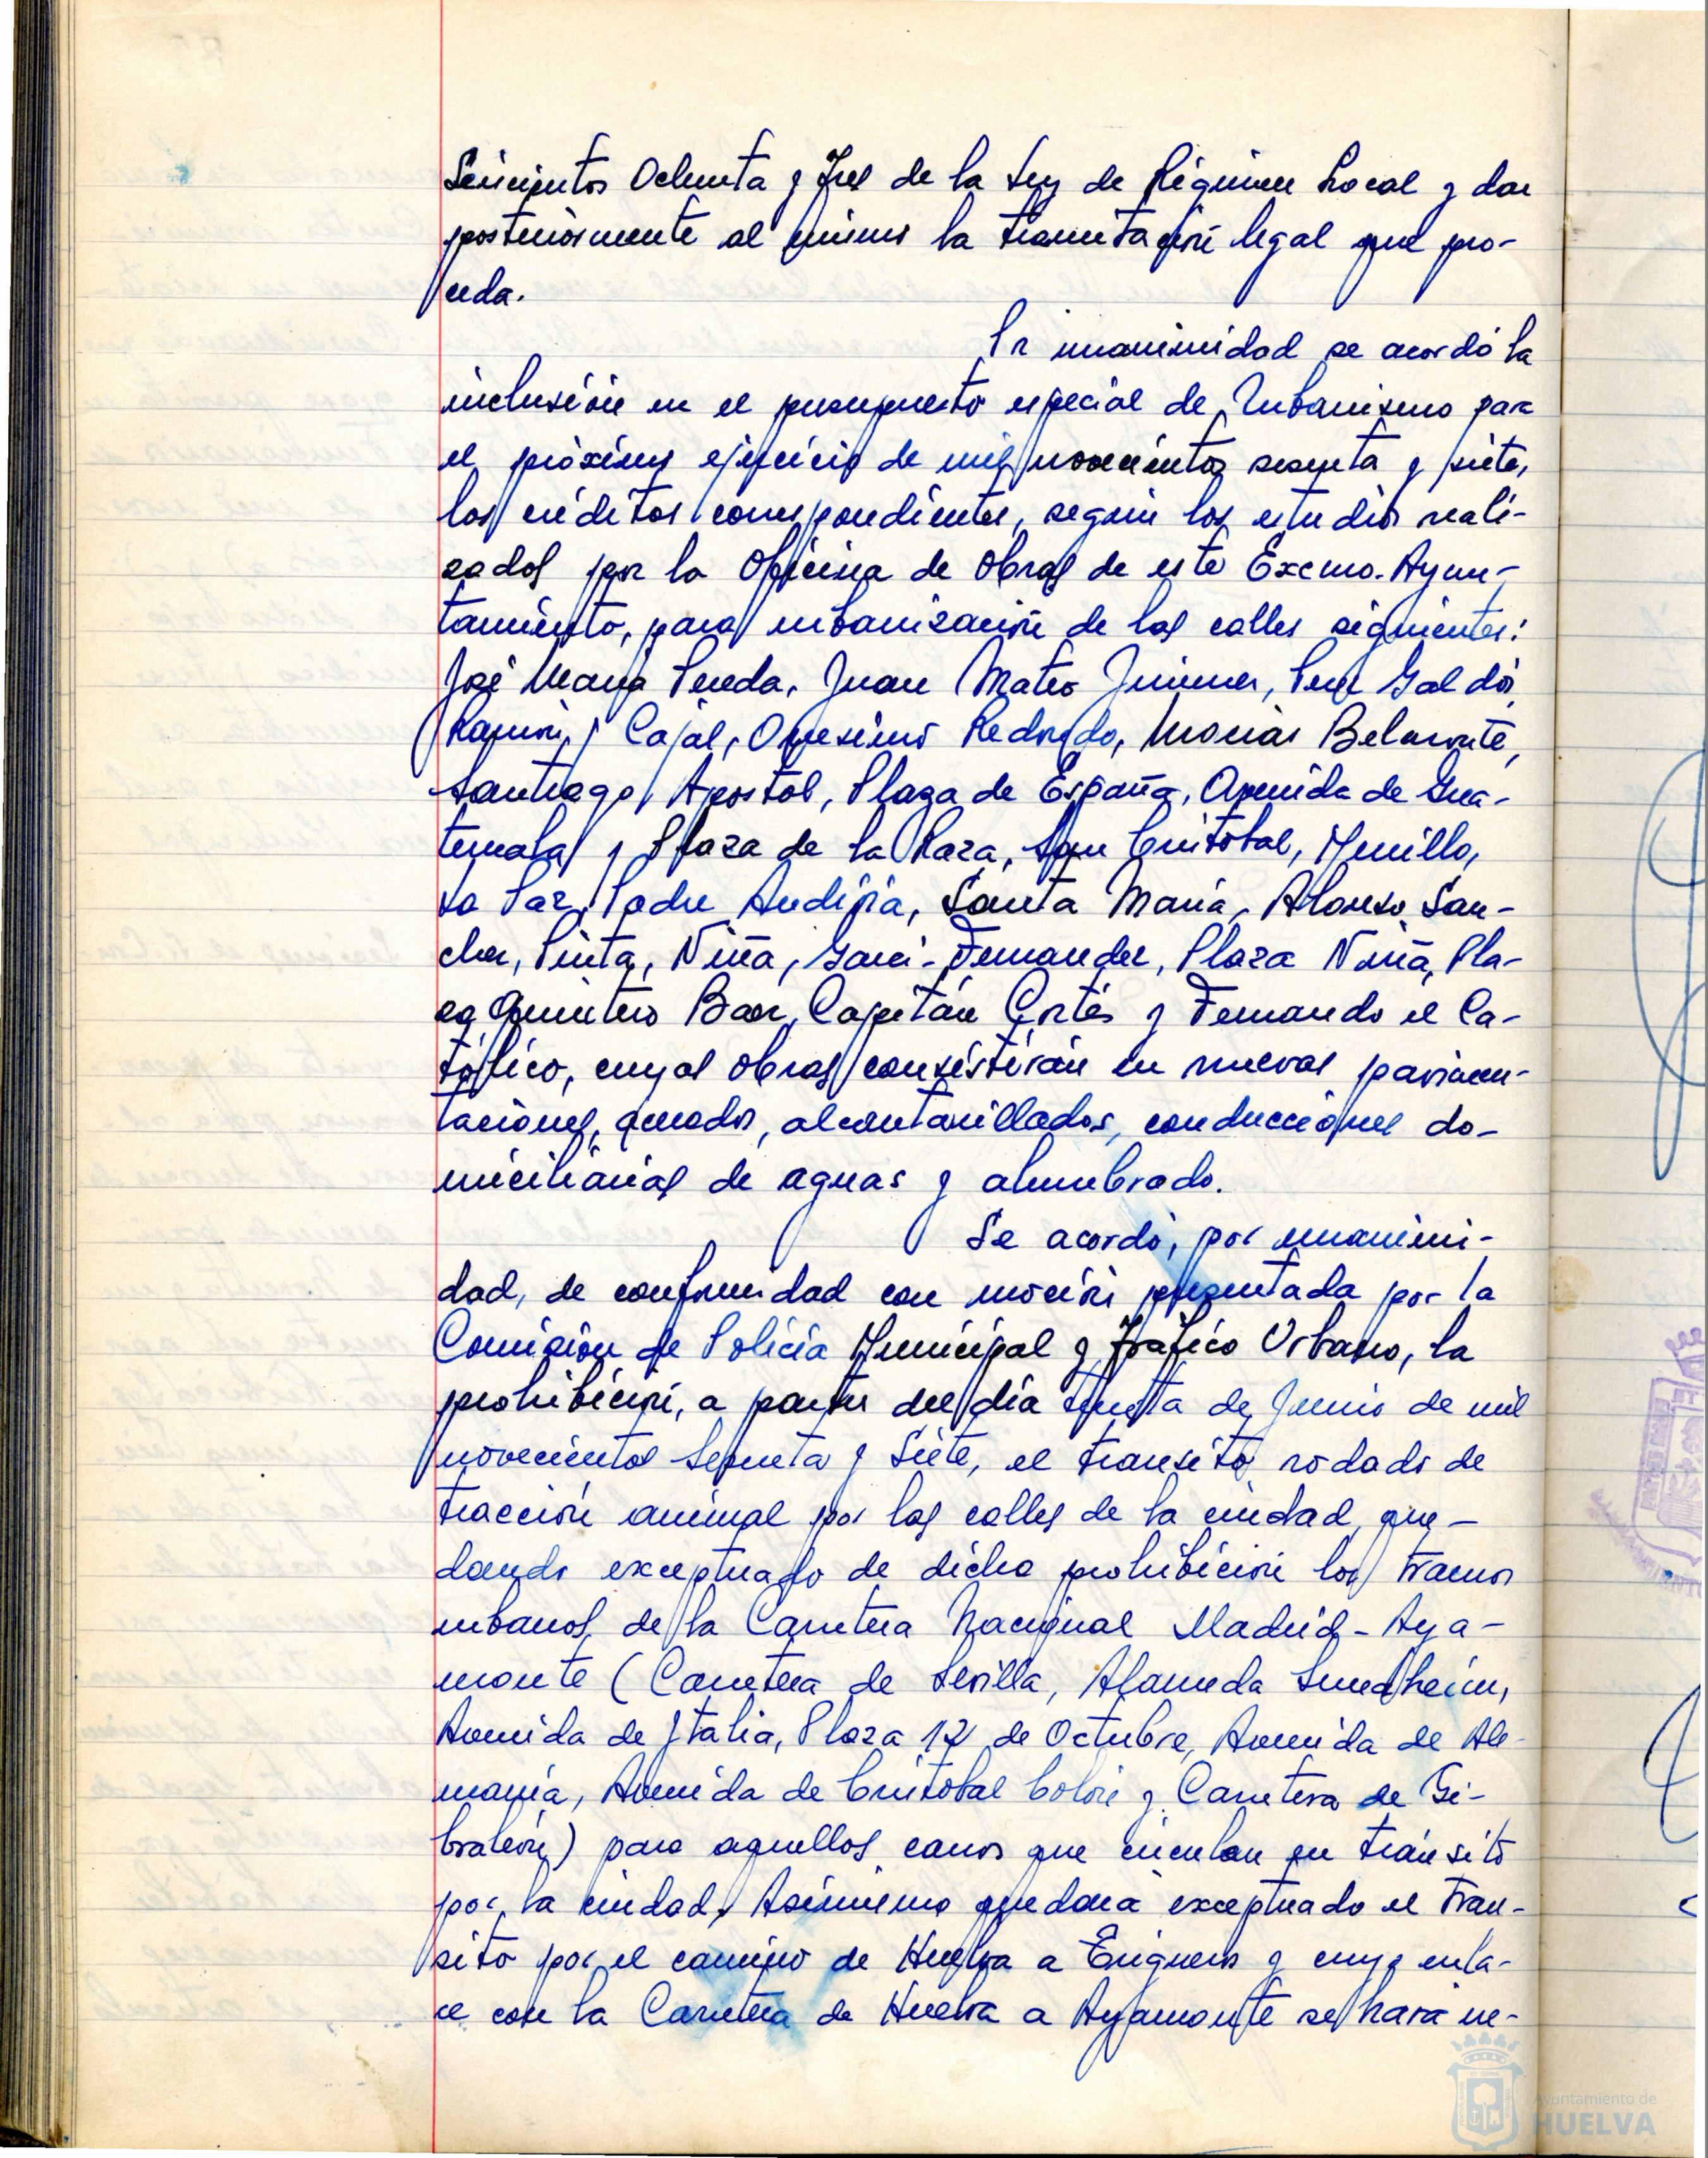 Seiscientos Ochenta y Tres de la Ley de Régimen Local y dar
posteriormente al mismo la tramitación legal que pro-
ceda.
Por unanimidad se acordó la
inclusión en el presupuesto especial de Urbanismo para
el próximo ejercicio de mil novecientos sesenta y siete,
los créditos correspondientes, según los estudios reali-
zados por la Oficina de Obras de este Excmo. Ayun-
tamiento, para urbanización de las calles siguientes:
José María Pereda, Juan Mateo Jiménez, Perez Galdós,
Ramón y Cajal, Onesimo Redondo, Macías Belmonte,
Santiago Apostol, Plaza de España, Avenida de Gua-
temala y Plaza de la Raza, San Cristobal, Murillo,
La Paz, Padre Andivia, Santa María, Alonso San-
chez, Pinta, Niña, Garci-Fernandez, Plaza Niña, Pla-
za Quintero Baez, Capitán Cortés y Fernando el Ca-
tólico, cuyas obras consistirán en nuevas pavimen-
taciones, acerados, alcantarillados, conducciones do-
miciliarias de aguas y alumbrado.
Se acordó, por unanimi-
dad, de conformidad con moción presentada por la
Comisión de Policía Municipal y Tráfico Urbano, la
prohibición, a partir del día treinta de Junio de mil
novecientos Sesenta y Siete, el transito rodado de
tracción animal por las calles de la ciudad, que-
dando exceptuado de dicha prohibición los tramos
urbanos de la Carretera Nacional Madrid-Aya-
monte (Carretera de Sevilla, Alameda Sundheim,
Avenida de Italia, Plaza 12 de Octubre, Avenida de Ale-
mania, Avenida de Cristobal Colón y Carretera de Gi-
braleón) para aquellos carros que circulan en tránsito
por la ciudad. Asimismo quedara exceptuado el Tran-
sito por el camino de Huelva a Enigueros y cuyo enla-
ce con la Carretera de Huelva a Ayamonte se hará ne-
Ayuntamiento de
HUELVA